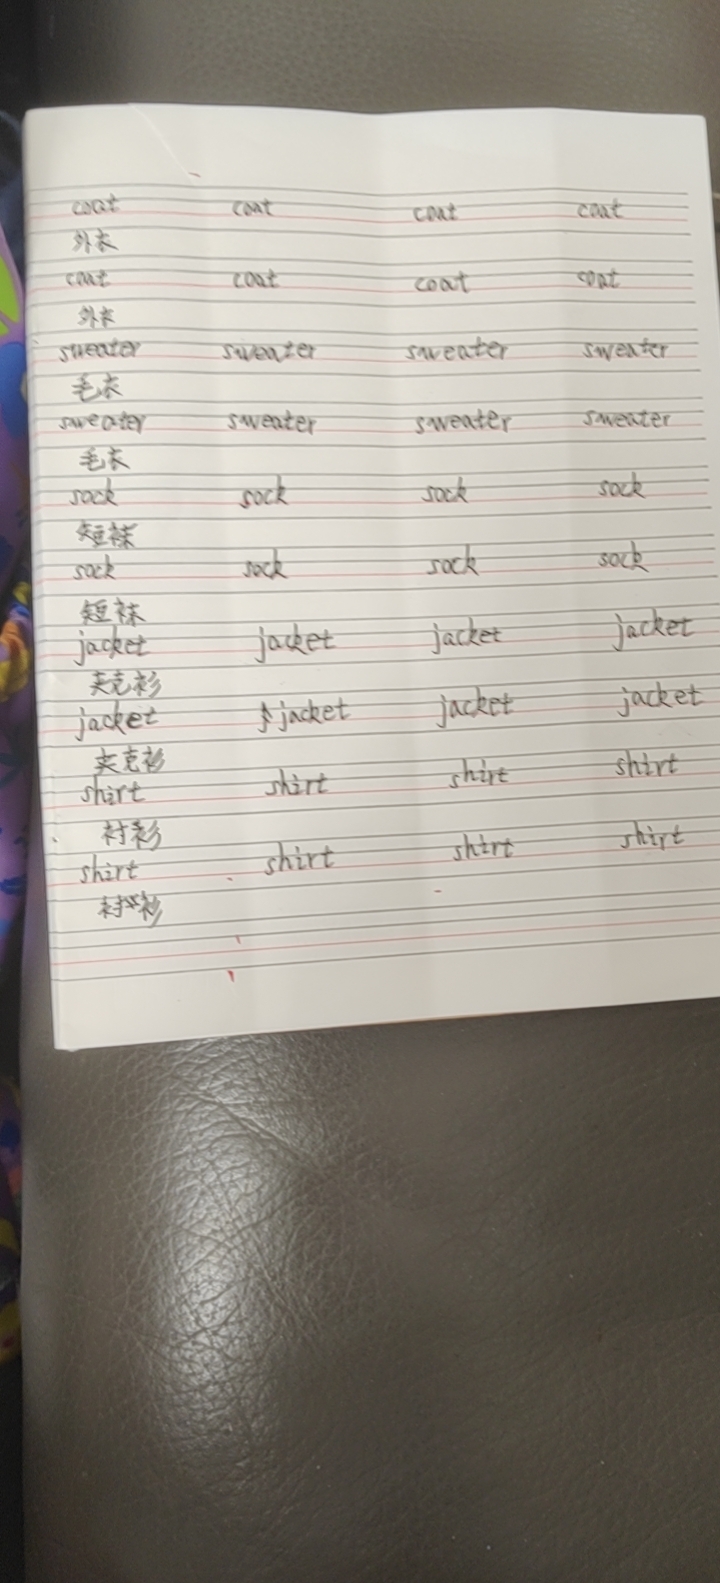 coat coat coat coat
外衣
coat coat coat coat
外衣
sweater sweater sweater sweater
毛衣
sweater sweater sweater sweater
毛衣
sock sock sock sock
短袜
sock sock sock sock
短袜
jacket jacket jacket jacket
夹克衫
jacket jacket jacket jacket
夹克衫
shirt shirt shirt shirt
衬衫
shirt shirt shirt shirt
衬衫